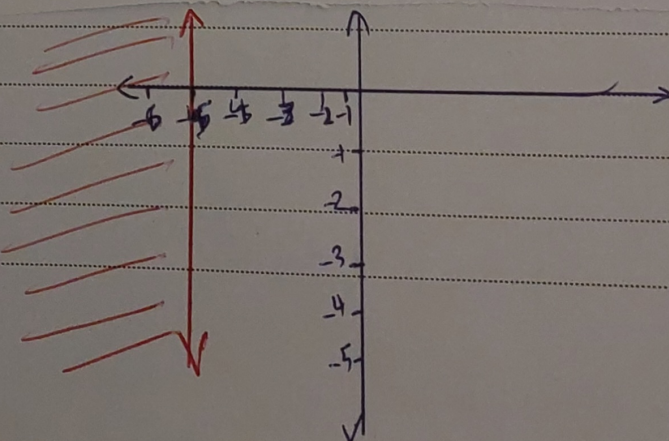 -6 -5 -4 -3 -2 -1
-1
-2
-3
-4
-5